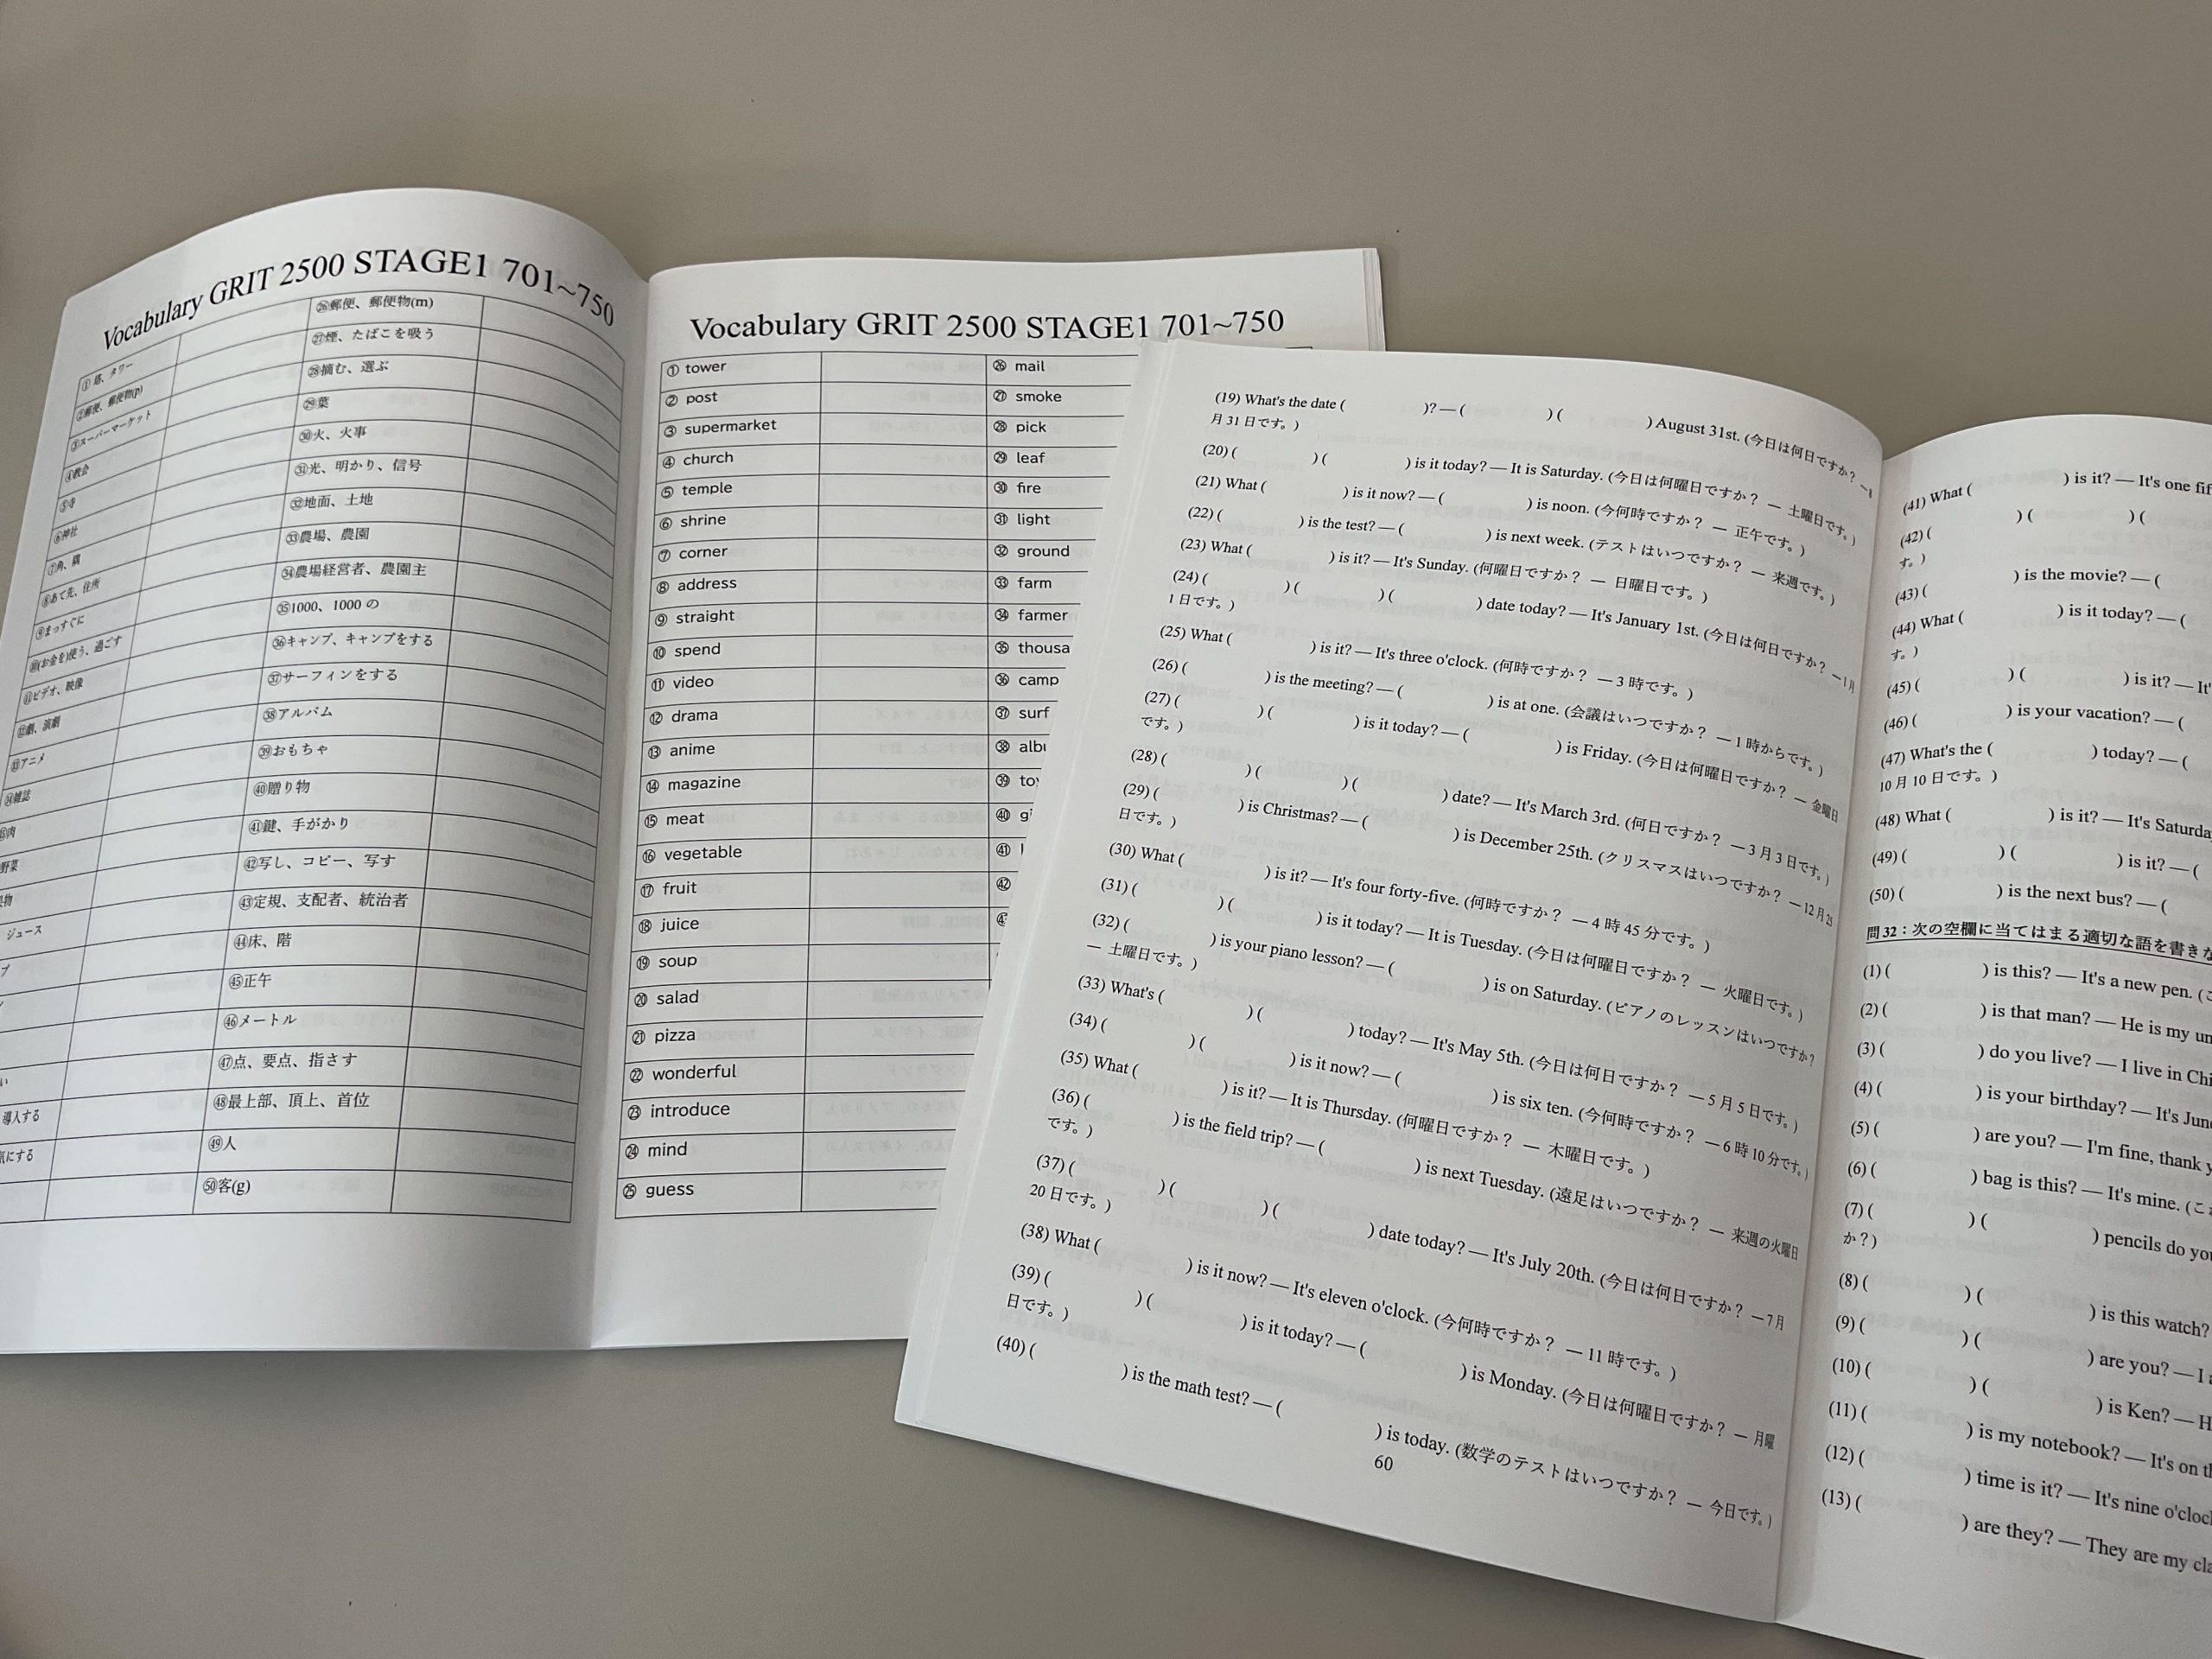 Vocabulary GRIT 2500 STAGE1 701~750
①塔、タワー
②郵便、郵便物(p)
③スーパーマーケット
④教会
⑤寺
⑥神社
⑦角、隅
⑧あて先、住所
⑨まっすぐに
⑩(お金を)使う、過ごす
⑪ビデオ、映像
⑫劇、演劇
⑬アニメ
⑭雑誌
肉
野菜
ジュース
導入する
㉖郵便、郵便物(m)
㉗煙、たばこを吸う
㉘摘む、選ぶ
㉙葉
㉚火、火事
㉛光、明かり、信号
㉜地面、土地
㉝農場、農園
㉞農場経営者、農園主
㉟1000、1000 の
㊱キャンプ、キャンプをする
㊲サーフィンをする
㊳アルバム
㊴おもちゃ
㊵贈り物
㊶鍵、手がかり
㊷写し、コピー、写す
㊸定規、支配者、統治者
㊹床、階
㊺正午
㊻メートル
㊼点、要点、指さす
㊽最上部、頂上、首位
㊾人
㊿客(g)
Vocabulary GRIT 2500 STAGE1 701~750
① tower
② post
③ supermarket
④ church
⑤ temple
⑥ shrine
⑦ corner
⑧ address
⑨ straight
⑩ spend
⑪ video
⑫ drama
⑬ anime
⑭ magazine
⑮ meat
⑯ vegetable
⑰ fruit
⑱ juice
⑲ soup
⑳ salad
㉑ pizza
㉒ wonderful
㉓ introduce
㉔ mind
㉕ guess
㉖ mail
㉗ smoke
㉘ pick
㉙ leaf
㉚ fire
㉛ light
㉜ ground
㉝ farm
㉞ farmer
㉟ thousa
㊱ camp
㊲ surf
㊳ albu
㊴ toy
㊵ gi
㊶
㊷
(19) What's the date ( )? — ( ) ( ) August 31st. (今日は何日ですか？ — 8
月 31 日です。)
(20) ( ) ( ) is it today? — It is Saturday. (今日は何曜日ですか？ — 土曜日です。)
(21) What ( ) is it now? — ( ) is noon. (今何時ですか？ — 正午です。)
(22) ( ) is the test? — ( ) is next week. (テストはいつですか？ — 来週です。)
(23) What ( ) is it? — It's Sunday. (何曜日ですか？ — 日曜日です。)
(24) ( ) ( ) ( ) date today? — It's January 1st. (今日は何日ですか？ — 1 月
1 日です。)
(25) What ( ) is it? — It's three o'clock. (何時ですか？ — 3 時です。)
(26) ( ) is the meeting? — ( ) is at one. (会議はいつですか？ — 1 時からです。)
(27) ( ) ( ) is it today? — ( ) is Friday. (今日は何曜日ですか？ — 金曜日
です。)
(28) ( ) ( ) ( ) date? — It's March 3rd. (何日ですか？ — 3 月 3 日です。)
(29) ( ) is Christmas? — ( ) is December 25th. (クリスマスはいつですか？ — 12 月 25
日です。)
(30) What ( ) is it? — It's four forty-five. (何時ですか？ — 4 時 45 分です。)
(31) ( ) ( ) is it today? — It is Tuesday. (今日は何曜日ですか？ — 火曜日です。)
(32) ( ) is your piano lesson? — ( ) is on Saturday. (ピアノのレッスンはいつですか？
— 土曜日です。)
(33) What's ( ) ( ) today? — It's May 5th. (今日は何日ですか？ — 5 月 5 日です。)
(34) ( ) ( ) is it now? — ( ) is six ten. (今何時ですか？ — 6 時 10 分です。)
(35) What ( ) is it? — It is Thursday. (何曜日ですか？ — 木曜日です。)
(36) ( ) is the field trip? — ( ) is next Tuesday. (遠足はいつですか？ — 来週の火曜日
です。)
(37) ( ) ( ) ( ) date today? — It's July 20th. (今日は何日ですか？ — 7 月
20 日です。)
(38) What ( ) is it now? — It's eleven o'clock. (今何時ですか？ — 11 時です。)
(39) ( ) ( ) is it today? — ( ) is Monday. (今日は何曜日ですか？ — 月曜
日です。)
(40) ( ) is the math test? — ( ) is today. (数学のテストはいつですか？ — 今日です。)
60
(41) What ( ) is it? — It's one fif
(42) ( ) ( ) (
す。)
(43) ( ) is the movie? — (
(44) What ( ) is it today? — (
す。)
(45) ( ) ( ) is it? — It'
(46) ( ) is your vacation? — (
(47) What's the ( ) today? — (
10 月 10 日です。)
(48) What ( ) is it? — It's Saturda
(49) ( ) ( ) is it? — (
(50) ( ) is the next bus? — (
問 32：次の空欄に当てはまる適切な語を書きな
(1) ( ) is this? — It's a new pen. (こ
(2) ( ) is that man? — He is my un
(3) ( ) do you live? — I live in Chi
(4) ( ) is your birthday? — It's June
(5) ( ) are you? — I'm fine, thank y
(6) ( ) bag is this? — It's mine. (こ
(7) ( ) ( ) pencils do you
か？)
(8) ( ) ( ) is this watch?
(9) ( ) ( ) are you? — I a
(10) ( ) ( ) is Ken? — H
(11) ( ) is my notebook? — It's on th
(12) ( ) time is it? — It's nine o'cloc
(13) ( ) are they? — They are my cla